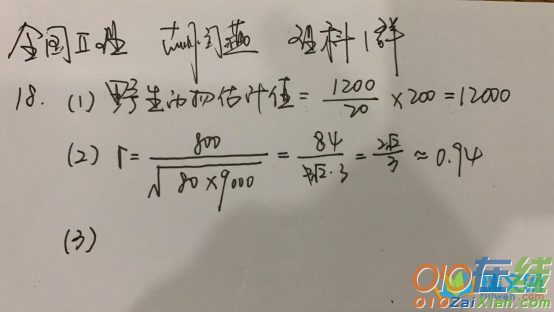 全国Ⅱ理 理科1群
18. (1) 野生动物估计值 = 1200/20 × 200 = 12000
(2) r = 800/√(80×9000) = 84/√2·3 = 2√2/3 ≈ 0.94
(3)
010在线
010ZaiXian.com